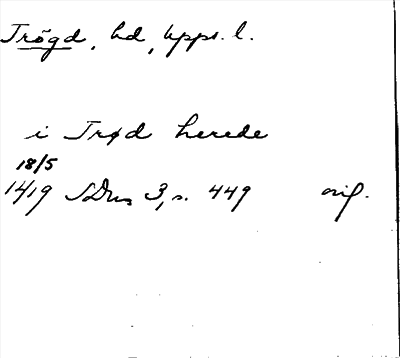 Trögd, hd, Upps. l.
i Trød herede
18/5
1419 SDns 3, s. 449 orig.